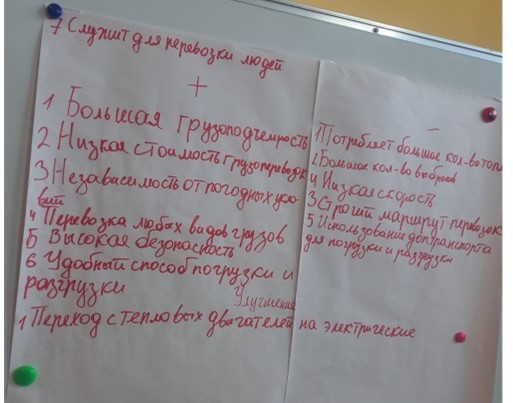 7 Служит для перевозки людей
+
1 Большая грузоподъемность
2 Низкая стоимость грузоперевозк
3 Независимость от погодных усло
вий
4 Перевозка любых видов грузов
5 Высокая безопасность
6 Удобный способ погрузки и
разгрузки
Улучшения
1 Переход с тепловых двигателей на электрические
—
1 Потребляет большое кол-во топл
2 Большое кол-во выбросов
4 Низкая скорость
3 Строгий маршрут перевозк
5 Использование доп транспорта
для погрузки и разгрузки